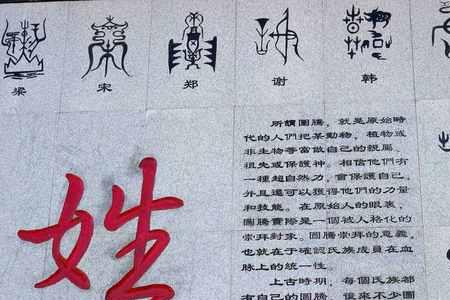 梁 宋 郑 谢 韩
姓
所謂圖騰,就是原始時
代的人們把某動物,植物或
非生物等當做自己的親屬、
祖先或保護神。相信他們有
一種超自然力,會保護自己,
并且還可以獲得他們的力量
和技能。在原始人的眼裏,
圖騰實際是一個被人格化的
崇拜對象。圖騰崇拜的意義,
也就在于確認氏族成員在血
脉上的統一性。
上古時期,每個氏族都
有自己的圖騰 後來不少圖